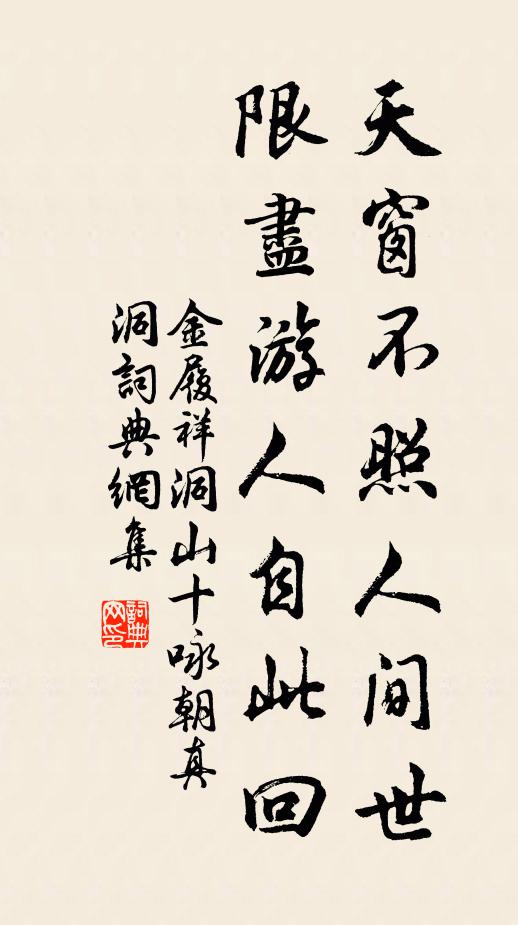 天窗不照人间世
限盡游人自此回
金履祥洞山十咏朝真
洞詞典網集
詞典网印